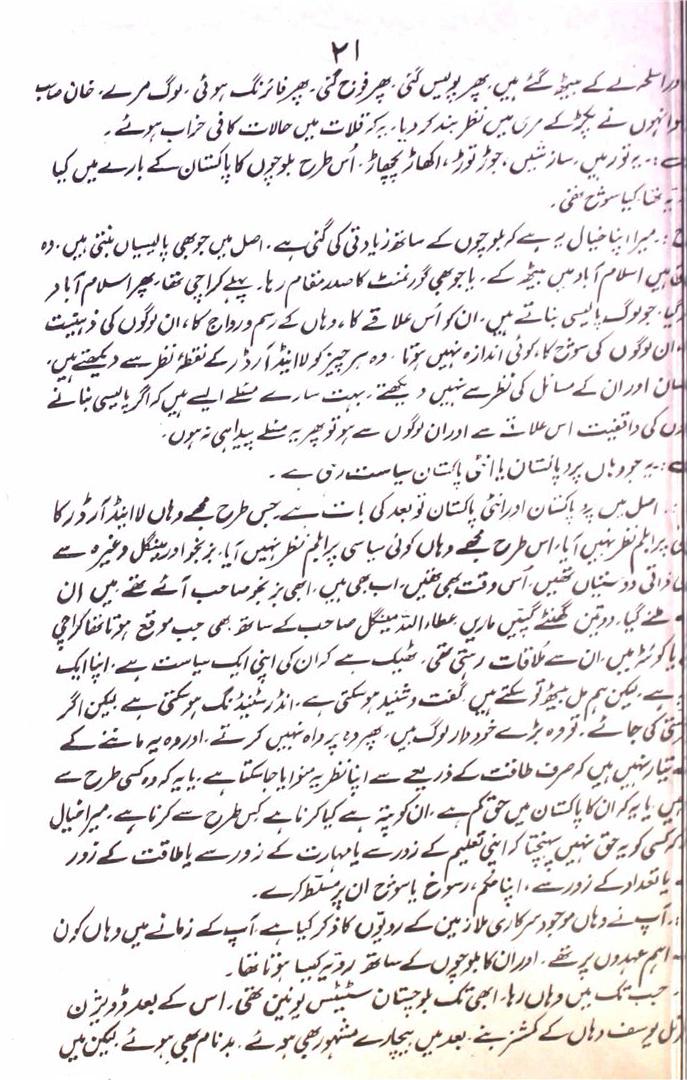 ۲۱
اور اسلحہ لے کے بیٹھ گئے ہیں، پھر پولیس گئی، پھر فوج گئی، پھر فائرنگ ہوئی، لوگ مرے، خان صاحب
انہوں نے پکڑ کے مری میں نظر بند کر دیا۔ یہ کہ قلات میں حالات کافی خراب ہوئے۔
یہ تو رہیں، سازشیں، جوڑ توڑ، اکھاڑ پچھاڑ، اُس طرح بلوچوں کا پاکستان کے بارے میں کیا
تھا، کیا سوچ تھی۔
ج:۔ میرا اپنا خیال یہ ہے کہ بلوچوں کے ساتھ زیادتی کی گئی ہے۔ اصل میں جو بھی پالیسیاں بنتی ہیں، وہ
ہیں اسلام آباد میں بیٹھ کے۔ یا جو بھی گورنمنٹ کا صدر مقام رہا۔ پہلے کراچی تھا، پھر اسلام آباد
گیا، جو لوگ پالیسی بناتے ہیں، ان کو اُس علاقے کا، وہاں کے رسم و رواج کا، ان لوگوں کی ذہنیت
ان لوگوں کی سوچ کا، کوئی اندازہ نہیں ہوتا۔ وہ ہر چیز کو لا اینڈ آرڈر کے نقطۂ نظر سے دیکھتے ہیں،
اور ان کے مسائل کی نظر سے نہیں دیکھتے۔ بہت سارے مسئلے ایسے ہیں کہ اگر پالیسی بنانے
کی واقفیت اس علاقے سے اور ان لوگوں سے ہو تو پھر یہ مسئلے پیدا ہی نہ ہوں۔
یہ جو وہاں پرو پاکستان یا انٹی پاکستان سیاست رہی ہے۔
اصل میں پرو پاکستان اور انٹی پاکستان تو بعد کی بات ہے۔ جس طرح مجھے وہاں لا اینڈ آرڈر کا
پرابلم نظر نہیں آیا، اس طرح مجھے وہاں کوئی سیاسی پرابلم نظر نہیں آیا، بزنجو اور مینگل وغیرہ سے
ذاتی دوستیاں تھیں، اُس وقت بھی تھیں، اب بھی ہیں، ابھی بزنجو صاحب آئے تھے میں ان
ملنے گیا، دو تین گھنٹے گپیں ماریں، عطاء اللہ مینگل صاحب کے ساتھ بھی جب موقع ہوتا تھا کراچی
یا کوئٹہ میں، ان سے ملاقات رہتی تھی۔ ٹھیک ہے کہ ان کی اپنی ایک سیاست ہے، اپنا ایک
ہے لیکن ہم مل بیٹھ تو سکتے ہیں، گفت و شنید ہو سکتی ہے، انڈرسٹینڈنگ ہو سکتی ہے لیکن اگر
کی جائے، تو وہ بڑے خوددار لوگ ہیں، پھر وہ پرواہ نہیں کرتے، اور وہ یہ ماننے کے
تیار نہیں ہیں کہ صرف طاقت کے ذریعے سے اپنا نظریہ منوایا جا سکتا ہے، یا یہ کہ وہ کسی طرح سے
ہیں، یا یہ کہ ان کا پاکستان میں حق کم ہے، ان کو پتہ ہے کیا کرنا ہے کس طرح سے کرنا ہے، میرا خیال
کہ کسی کو یہ حق نہیں پہنچتا کہ اپنی تعلیم کے زور سے یا مہارت کے زور سے یا طاقت کے زور
یا تعداد کے زور سے، اپنا حکم، رسوخ یا سوچ ان پر مسلط کرے۔
آپ نے وہاں موجود سرکاری ملازمین کے رویّوں کا ذکر کیا ہے، آپ کے زمانے میں وہاں کون
اہم عہدوں پر تھے۔ اور ان کا بلوچوں کے ساتھ رویّہ کیسا ہوتا تھا۔
جب تک میں وہاں رہا، ابھی تک بلوچستان سٹیٹس یونین تھی۔ اس کے بعد ڈویژن
یوسف وہاں کے کمشنر بنے، بعد میں بیچارے مشہور بھی ہوئے، بدنام بھی ہوئے لیکن میں